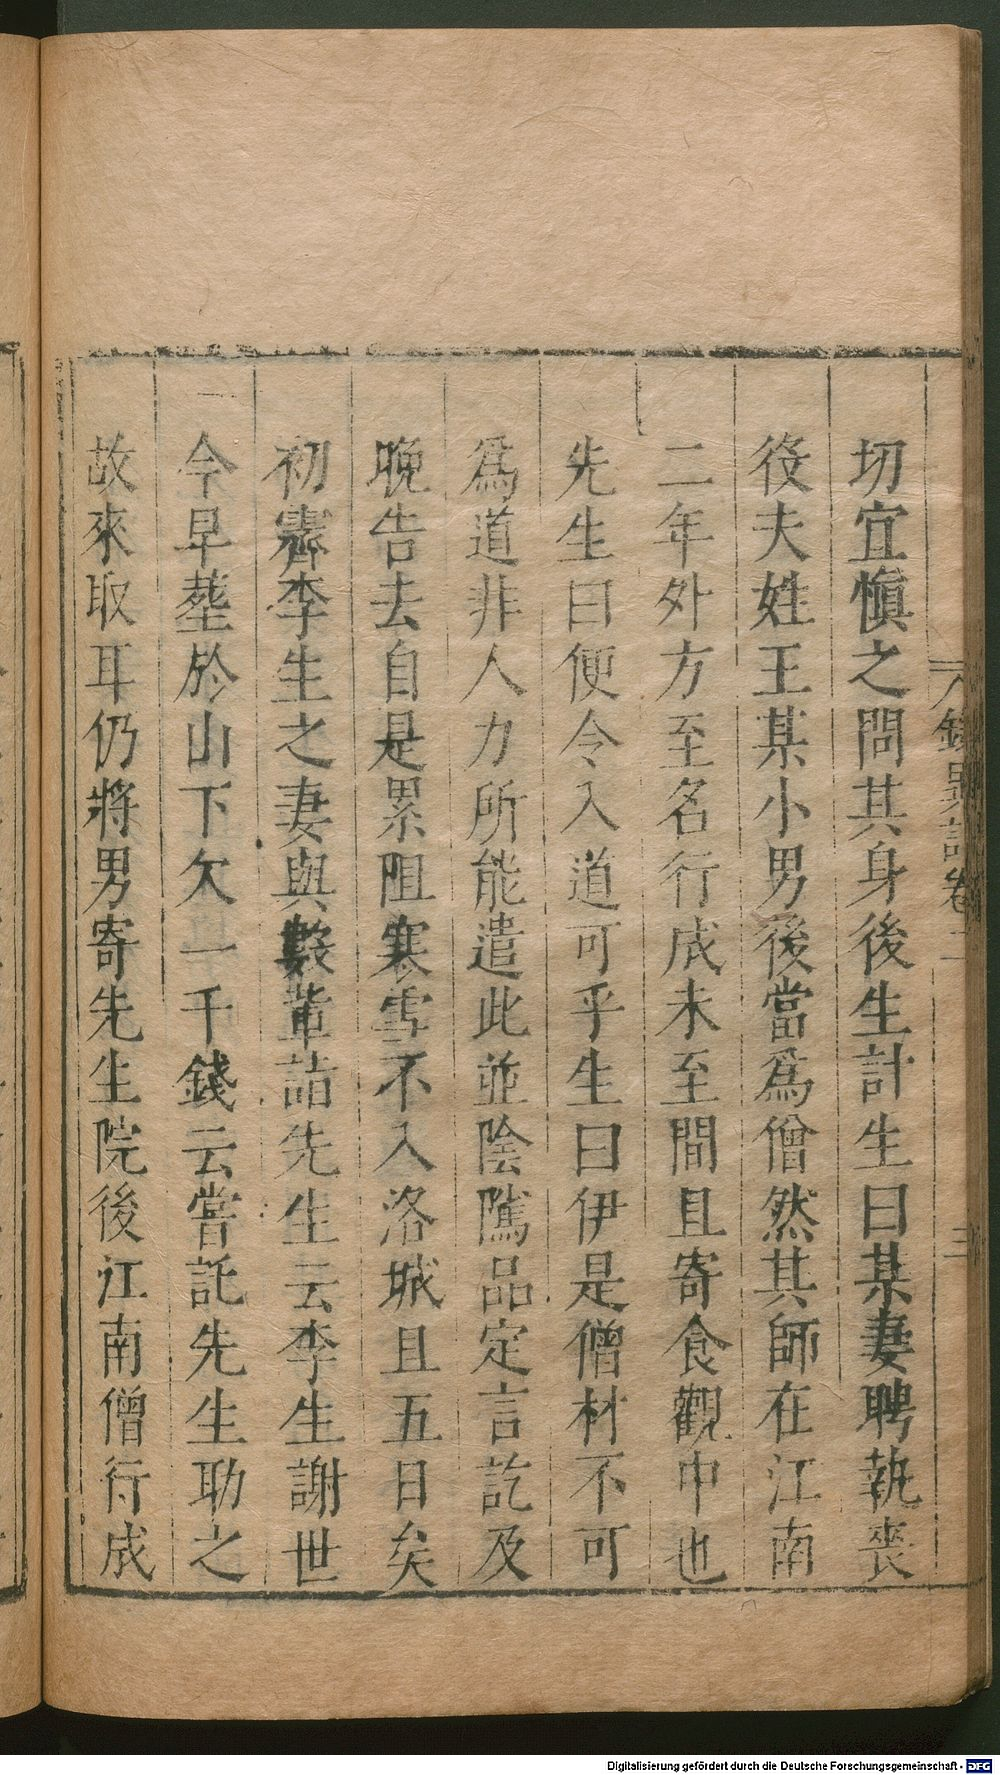 切宜愼之問其身後生計生曰某妻聘執喪
役夫姓王某小男後當爲僧然其師在江南
二年外方至名行成未至間且寄食觀中也
先生曰便令入道可乎生曰伊是僧材不可
爲道非人力所能遣此並陰隲品定言訖及
晩告去自是累阻寒雪不入洛城且五日矣
初霽李生之妻與數輩詣先生云李生謝世
今早塟於山下欠一千錢云嘗託先生助之
故來取耳仍將男寄先生院後江南僧行成
錄異記卷二
三
Digitalisierung gefördert durch die Deutsche Forschungsgemeinschaft - DFG